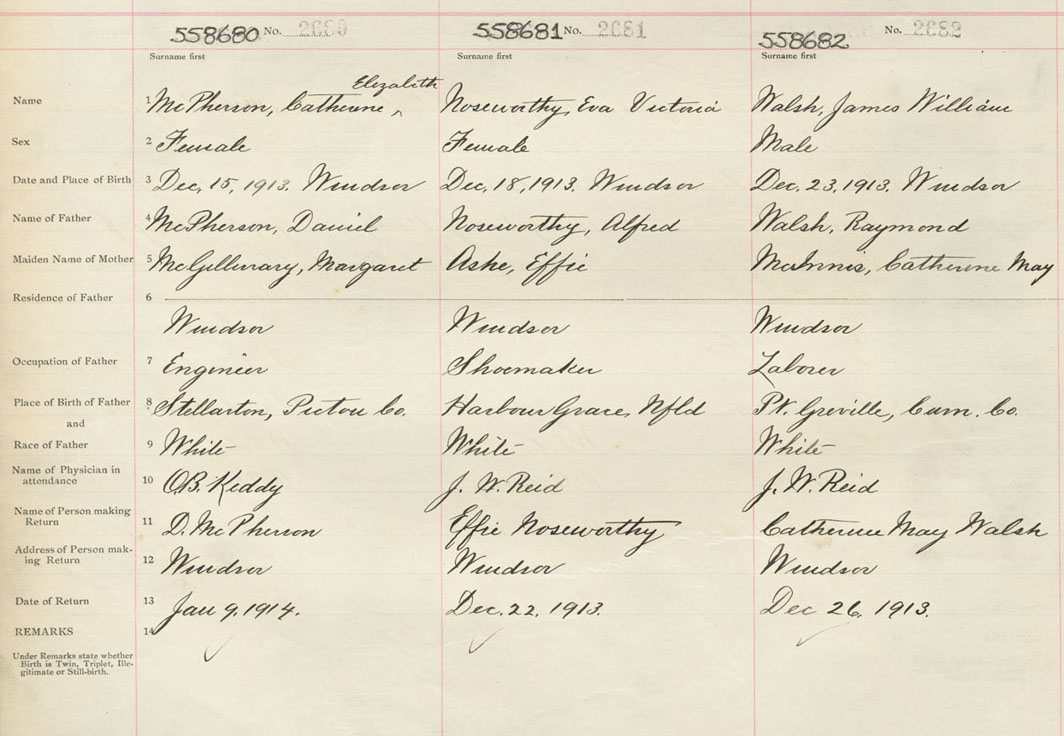 558680 No. 2680 558681 No. 2681 558682 No. 2682
Surname first Surname first Surname first
Elizabeth
Name 1 McPherson, Catherine ^ Noseworthy, Eva Victoria Walsh, James William
Sex 2 Female Female Male
Date and Place of Birth 3 Dec. 15, 1913. Windsor Dec. 18, 1913. Windsor Dec. 23, 1913. Windsor
Name of Father 4 McPherson, Daniel Noseworthy, Alfred Walsh, Raymond
Maiden Name of Mother 5 McGillivrary, Margaret Ashe, Effie McInnis, Catherine May
Residence of Father 6
Windsor Windsor Windsor
Occupation of Father 7 Engineer Shoemaker Laborer
Place of Birth of Father 8 Stellarton, Pictou Co. Harbour Grace, Nfld Pt. Greville, Cum. Co.
and
Race of Father 9 White White White
Name of Physician in
attendance 10 O.B. Keddy J. W. Reid J. W. Reid
Name of Person making
Return 11 D. McPherson Effie Noseworthy Catherine May Walsh
Address of Person mak-
ing Return 12 Windsor Windsor Windsor
Date of Return 13 Jan 9. 1914. Dec. 22, 1913. Dec 26, 1913.
REMARKS 14
Under Remarks state whether
Birth is Twin, Triplet, Ille-
gitimate or Still-birth.